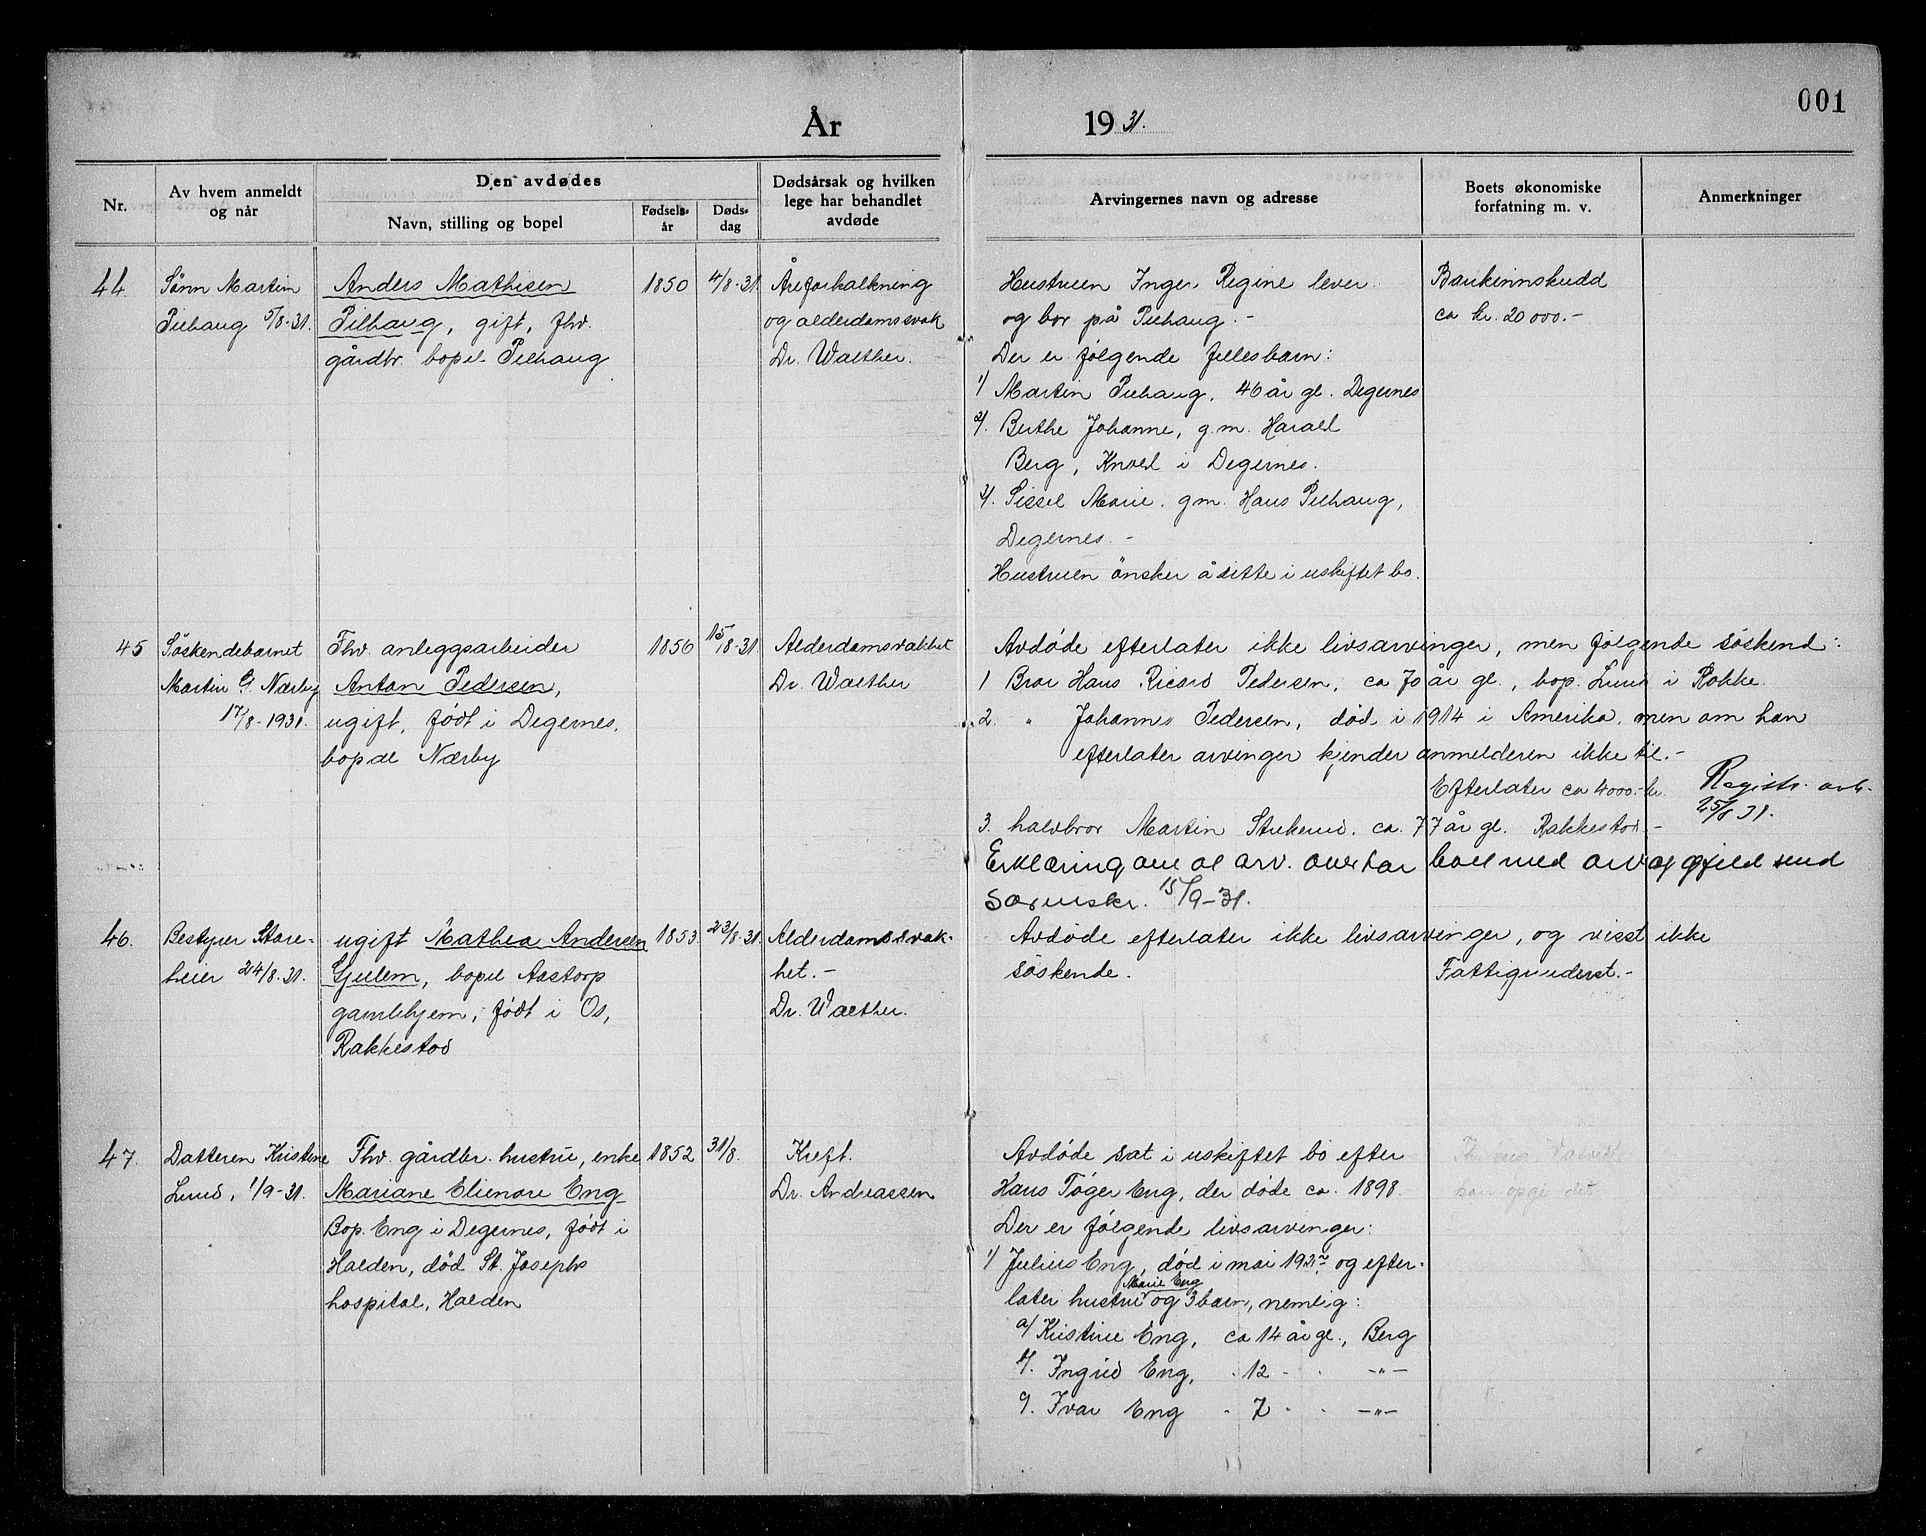 001
År 1931.
Nr.
Av hvem anmeldt
og når
Den avdødes
Navn, stilling og bopel
Fødsels-
år
Døds-
dag
Dødsårsak og hvilken
lege har behandlet
avdøde
Arvingernes navn og adresse
Boets økonomiske
forfatning m. v.
Anmerkninger
44.
Sønn Martin
Pilhaug 5/8-31.
Anders Mathisen
Pilhaug, gift, fhv.
gårdbr. bopel Pilhaug
1850
4/8-31.
Åreforkalkning
og alderdomssvak
Dr. Walther.
Hustruen Inger Regine lever
og bor på Pilhaug.-
Der er følgende fellesbarn:
1/ Martin Pilhaug, 46 år gl. Degernes
2/. Berthe Johanne, g.m. Harald
Berg, Knold i Degernes.
3/. Sissel Marie, g.m. Hans Pilhaug,
Degernes.-
Hustruen önsker å sitte i uskiftet bo.
Bankinnskudd
ca kr. 20 000.-
45
Söskendebarnet
Martin G. Nærby
17/8-1931.
Fhv. anleggsarbeider
Anton Pedersen,
ugift, født i Degernes,
bopel Nærby
1856
15/8-31.
Alderdomsvakhet
Dr. Walther
Avdøde efterlater ikke livsarvinger, men følgende søskend:
1 Bror Hans Ricard Pedersen, ca 70 år gl., bop. Lund i Rokke.
2. " Johannes Pedersen, død i 1914 i Amerika, men om han
efterlater arvinger kjender anmelderen ikke til.-
Efterlater ca 4000.- kr.
Registr. avh.
25/8 31.
3. halvbror Martin Strikerud, ca. 77 år gl. Rakkestad.-
Erklæring om at arv. overtar boet med arv og gjeld send
Sorenskr. 15/9-31.
46.
Bestyrer Store-
heier 24/8.31.
ugift Mathea Andersen
Gjulem, bopel Aastorp
gamlehjem, født i Os,
Rakkestad
1853
23/8.31.
Alderdomssvak-
het.-
Dr. Walther.
Avdøde efterlater ikke livsarvinger, og visst ikke
søskende.
Fattigunderst.-
47.
Datteren Kristine
Lund, 1/9-31.
Fhv. gårdbr. hustru, enke
Mariane Elienore Eng
Bop. Eng i Degernes, født i
Halden, død St. Josephs
hospital, Halden
1852
31/8.
Kreft.
Dr. Andreassen
Avdøde sat i uskiftet bo efter
Hans Tøger Eng, der døde ca. 1898.
Der er følgende livsarvinger:
1/ Julius Eng, død i mai 1931 og efter-
Marie Eng
later hustru og 3 barn, nemlig:
a/ Kristine Eng, ca 14 år gl., Berg
b/. Ingrid Eng, " 12 " " -"-
c/. Ivar Eng " 7 " " -"-
kan opgi det